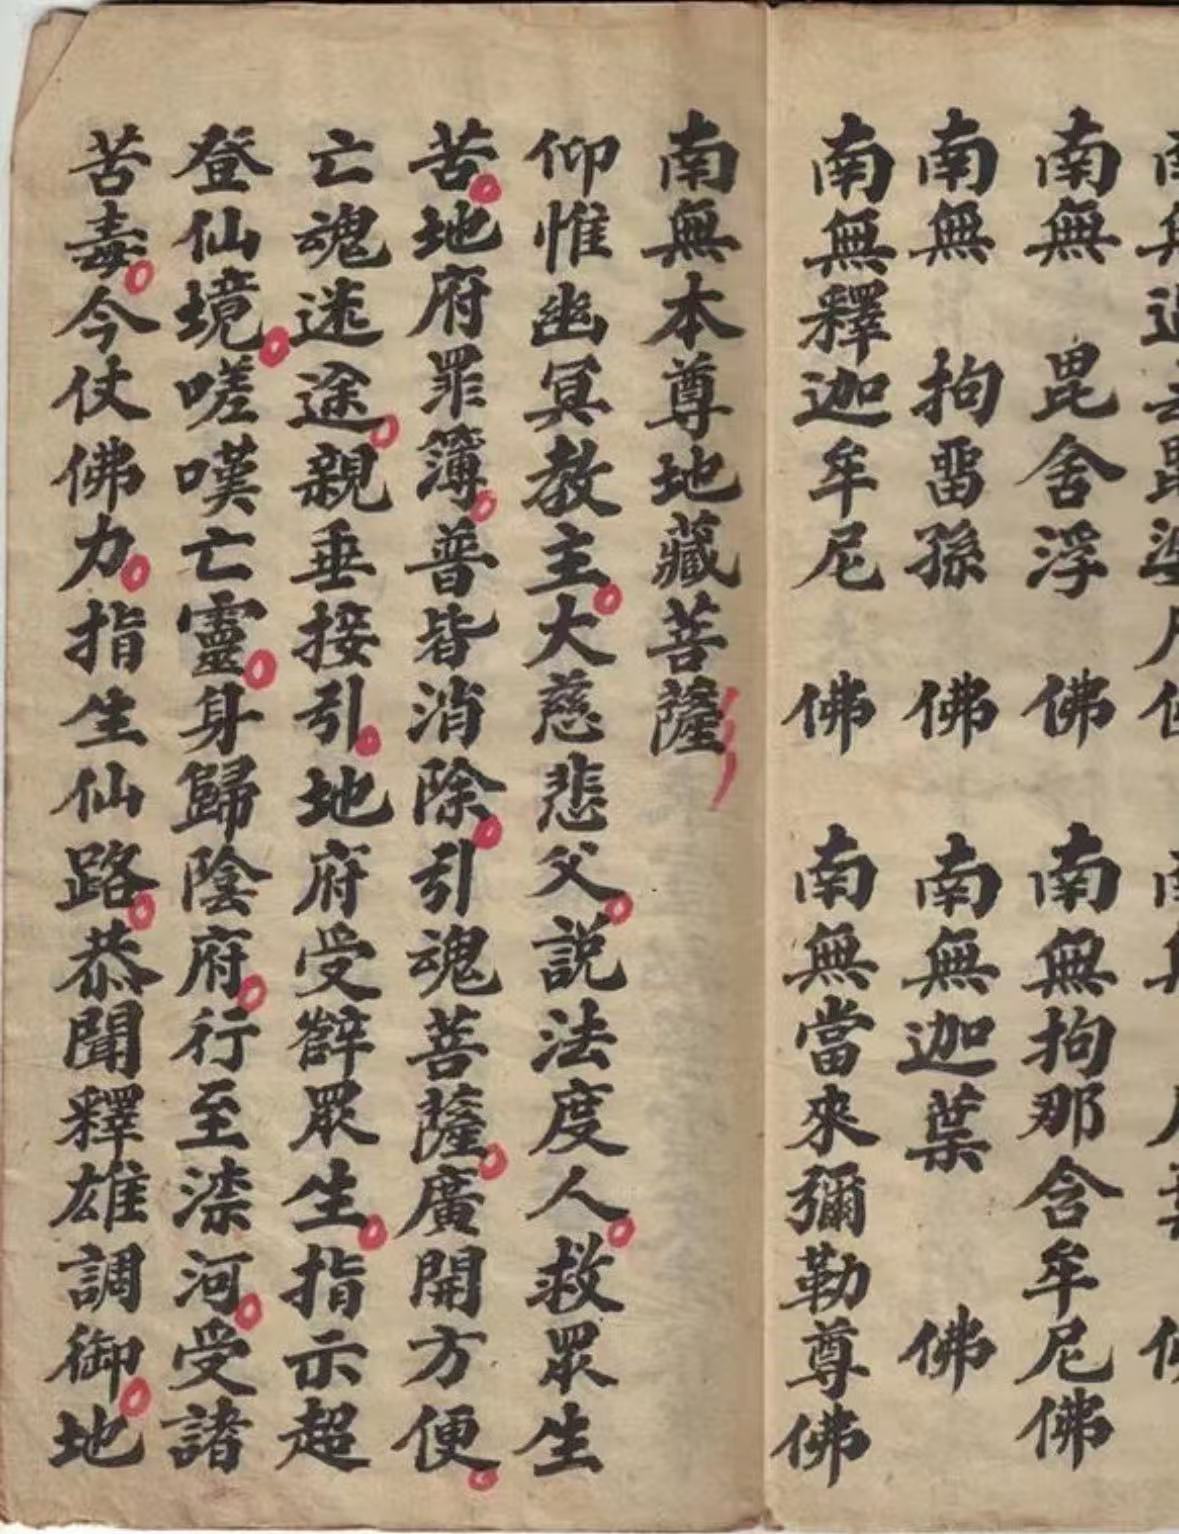 南無 毘舍浮 佛 南無拘那含牟尼佛
南無 拘畱孫 佛 南無迦葉 佛
南無釋迦牟尼 佛 南無當來彌勒尊佛
南無本尊地藏菩薩
仰惟幽冥教主。大慈悲父。説法度人。救眾生
苦。地府罪簿。普皆消除。引魂菩薩。廣開方便。
亡魂迷途。親垂接引。地府受眾生。指示超
登仙境。嗟嘆亡靈。身歸陰府。行至渿河。受諸
苦毒。今仗佛力。指生仙路。恭聞釋雄調御。地